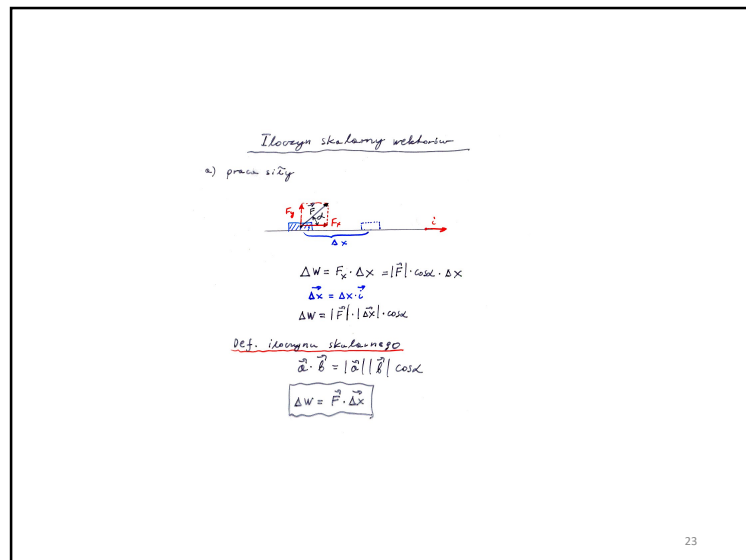 Iloczyn skalarny wektorów
a) praca siły
F_y F⃗ α F_x i⃗
Δx
ΔW = F_x · Δx = |F⃗| · cosα · Δx
Δx⃗ = Δx · i⃗
ΔW = |F⃗| · |Δx⃗| · cosα
Def. iloczynu skalarnego
a⃗ · b⃗ = |a⃗| |b⃗| cosα
ΔW = F⃗ · Δx⃗
23